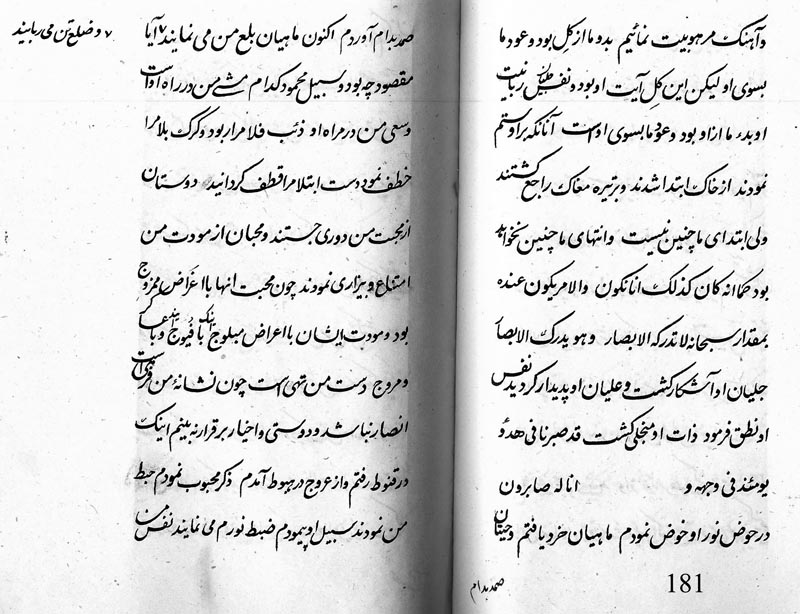 و آهنگ مرهوبیت نمائیم بدو ما از کل بود و عود ما
بسوی او لیکن این کل آیت او بود و نفس ربانیت
او بدء ما از او بود و عود ما بسوی اوست آنانکه براو ستم
نمودند از خاک ابتدا شدند و بر تیره مغاک راجع گشتند
ولی ابتدای ما چنین نیست و انتهای ما چنین نخواهد
بود کما انه کان کذلک انا نکون و الامر یکون عنده
بمقدار سبحانه لا تدرکه الابصار و هو یدرک الابصار
جلیان او آشکار گشت و علیان او پدیدار گردید نفس
او نطق فرمود ذات او متجلی گشت قد صبرنا فی هذه
یومئذ فی وجهه و انا له صابرون
در حوض نور او خوض نمودم ماهیان خرد یافتم و حیتان
صمد بدام
181
صمد بدام آوردم اکنون ماهیان بلع من می نمایند ۷ آیا
۷ و ضلع تن می ربایند
مقصود چه بود و سبیل محمود کدام مشی من در راه اوست
وسعی من در مراه او ذئب فلا مرا ربود و گرگ بلا مرا
خطف نمود دست ابتلا مرا قطف گردانید دوستان
از محبت من دوری جستند و محبان از مودت من
امتناع و بیزاری نمودند چون محبت انها با اغراض ممزوج
بود و مودت ایشان با اعراض مبلوج
و مروج دست من تهی است چون نشانهٔ من
انصار نباشد و دوستی و اخیار بر قرار نه بینم اینک
در قنوط رفتم و از عروج در هبوط آمدم ذکر محبوب نمودم حبط
من نمودند سبیل او پیمودم ضبط نورم می نمایند نفس من